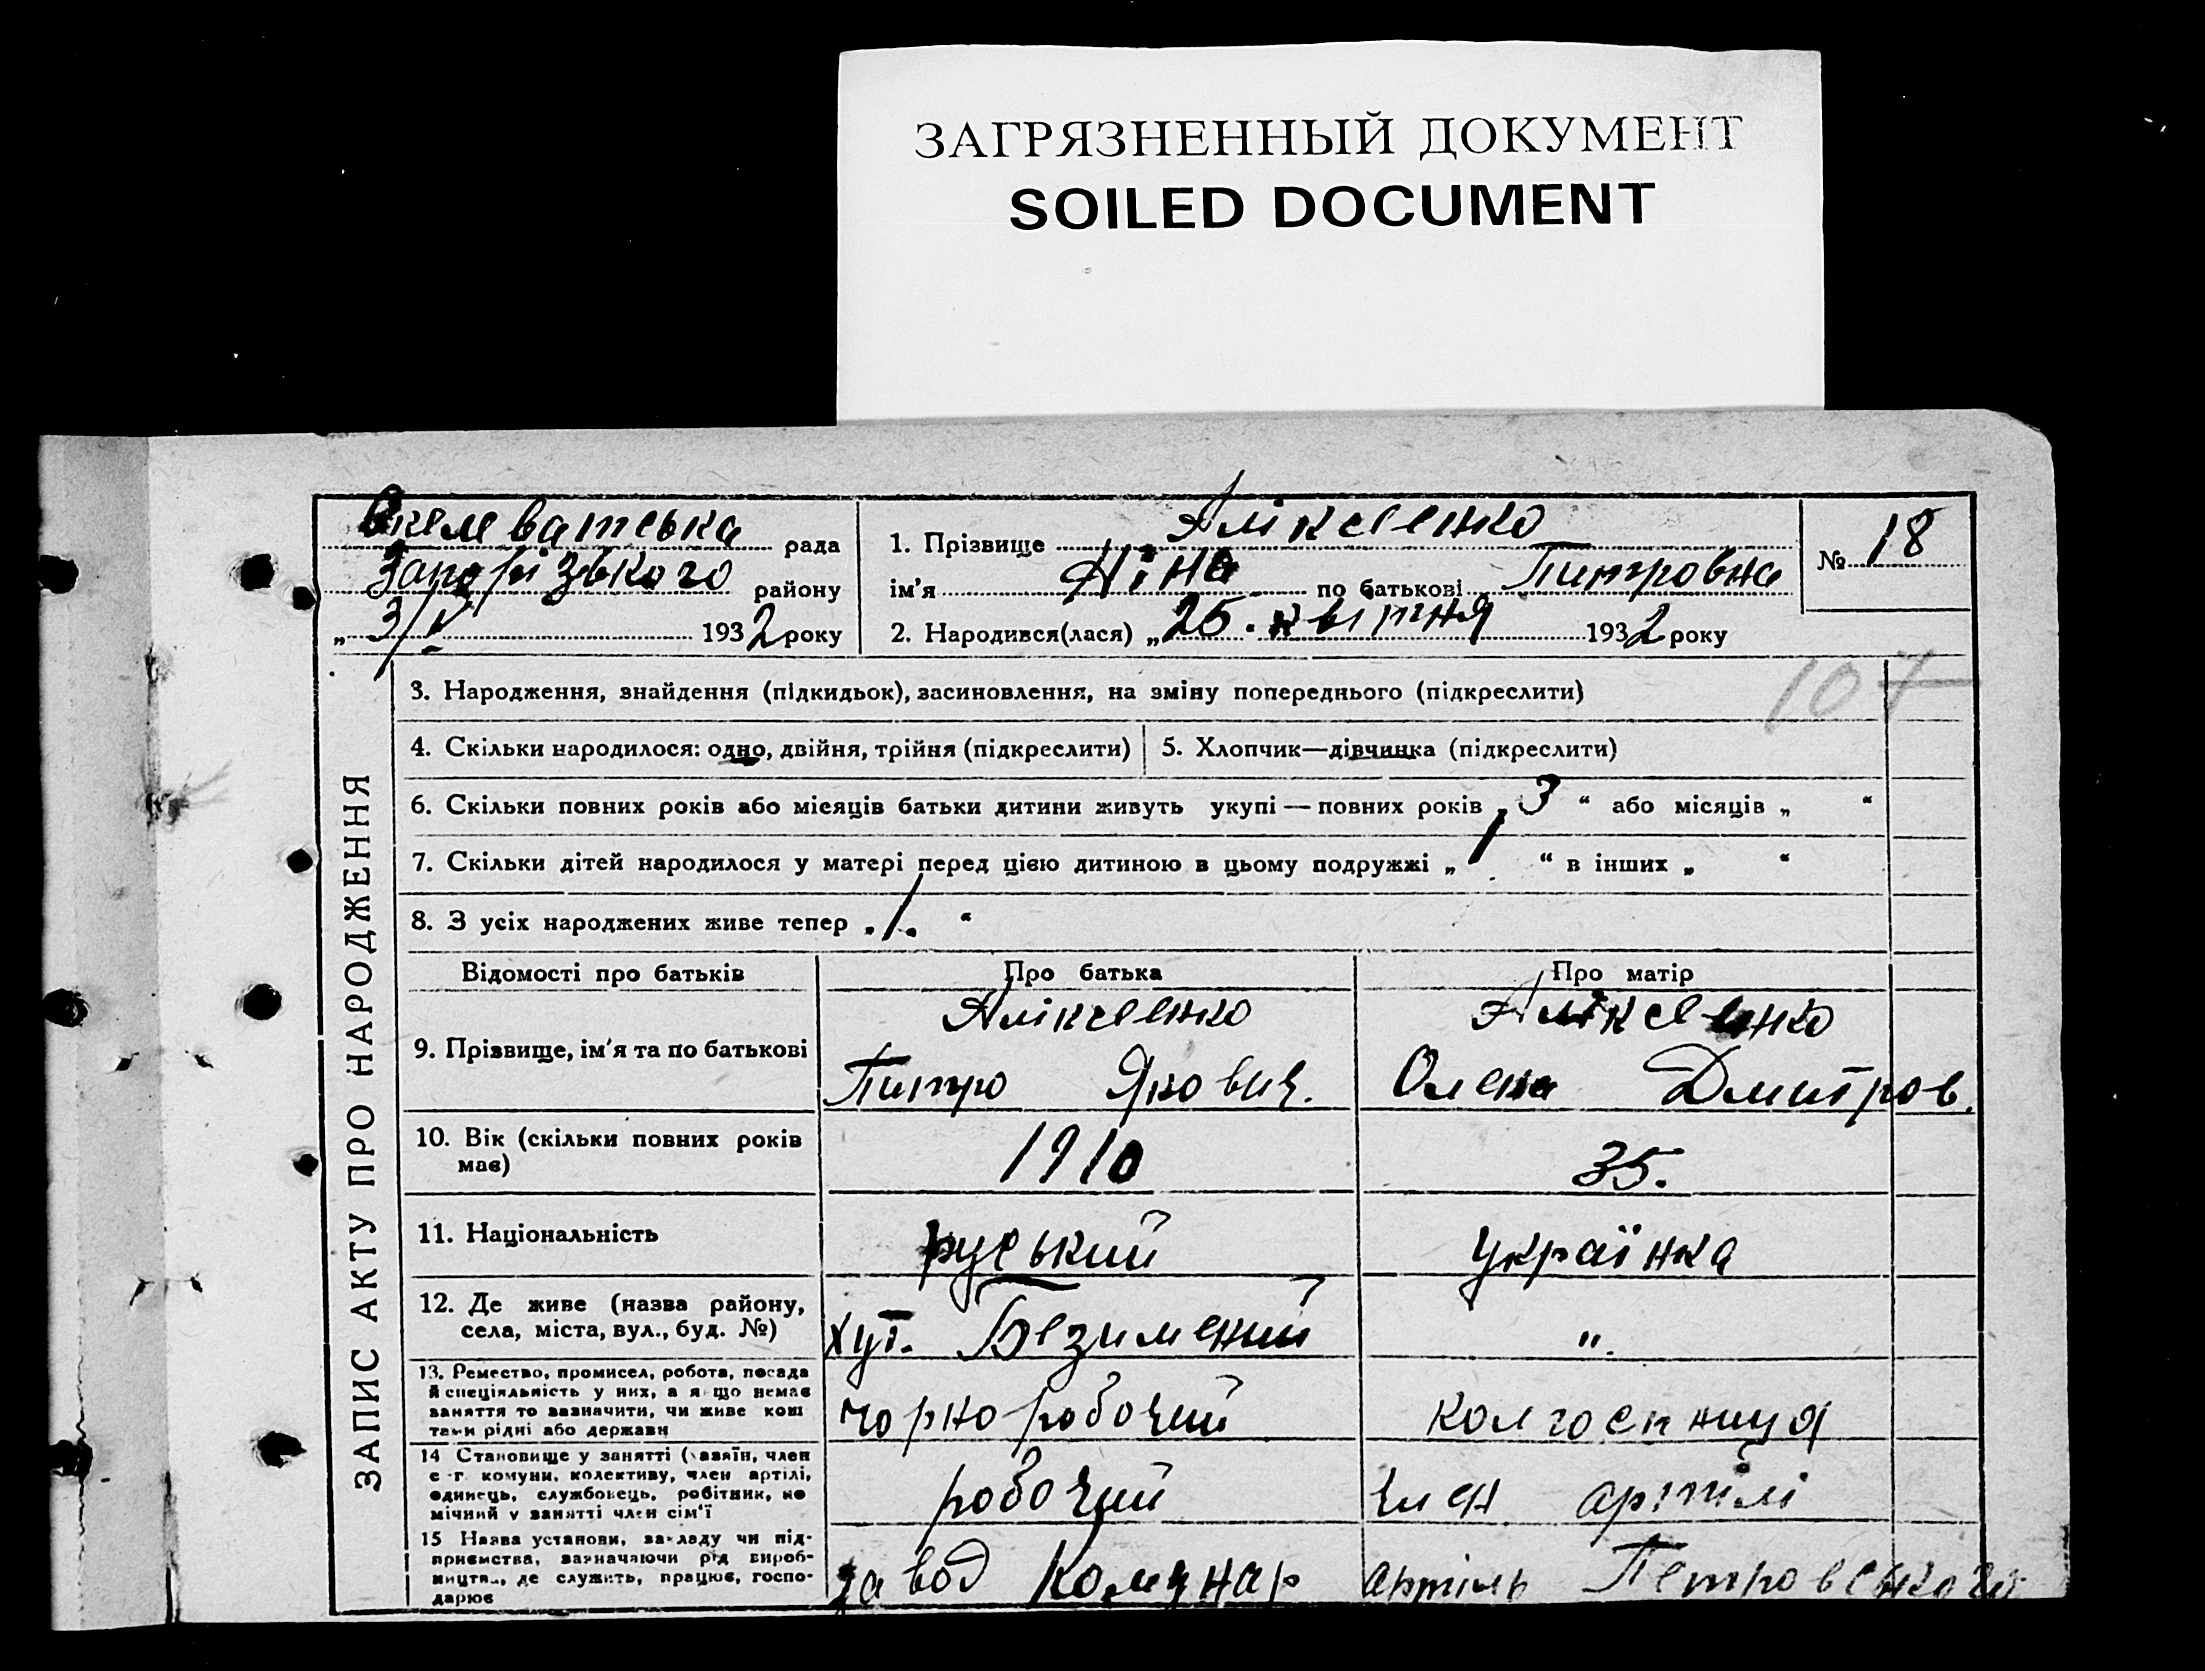 ЗАГРЯЗНЕННЫЙ ДОКУМЕНТ
SOILED DOCUMENT
Скелеватська рада
Запорізького району
„ 3/V 1932 року
1. Прізвище Аліксеенко
ім'я Ніна по батькові Питровна
2. Народився(лася) „ 25. квітня 1932 року
№ 18
107
ЗАПИС АКТУ ПРО НАРОДЖЕННЯ
3. Народження, знайдення (підкидьок), засиновлення, на зміну попереднього (підкреслити)
4. Скільки народилося: одно, двійня, трійня (підкреслити)
5. Хлопчик—дівчинка (підкреслити)
6. Скільки повних років або місяців батьки дитини живуть укупі — повних років „ 3 “ або місяців „ “
7. Скільки дітей народилося у матері перед цією дитиною в цьому подружжі „ 1 “ в інших „ “
8. З усіх народжених живе тепер „ 1. “
Відомості про батьків Про батька Про матір
9. Прізвище, ім'я та по батькові
Аліксеенко
Питро Якович.
Аліксеенко
Олена Дмитров.
10. Вік (скільки повних років
має)
1910
35.
11. Національність
руський
українка
12. Де живе (назва району,
села, міста, вул., буд. №)
хут. Безимений
".
13. Ремество, промисел, робота, посада
й спеціяльність у них, а якщо немає
заняття то зазначити, чи живе кош
тами рідні або держави
чорноробочий
колгоспниця
14 Становище у занятті (хазяїн, член
с-г. комуни, колективу, член артілі,
одинець, службовець, робітник, по
мічний у занятті член сім'ї
робочий
член артілі
15 Назва установи, закладу чи під-
приємства, зазначаючи рід вироб-
ництва, де служить, працює, госпо-
дарює
завод Комунар
артіль Петровського